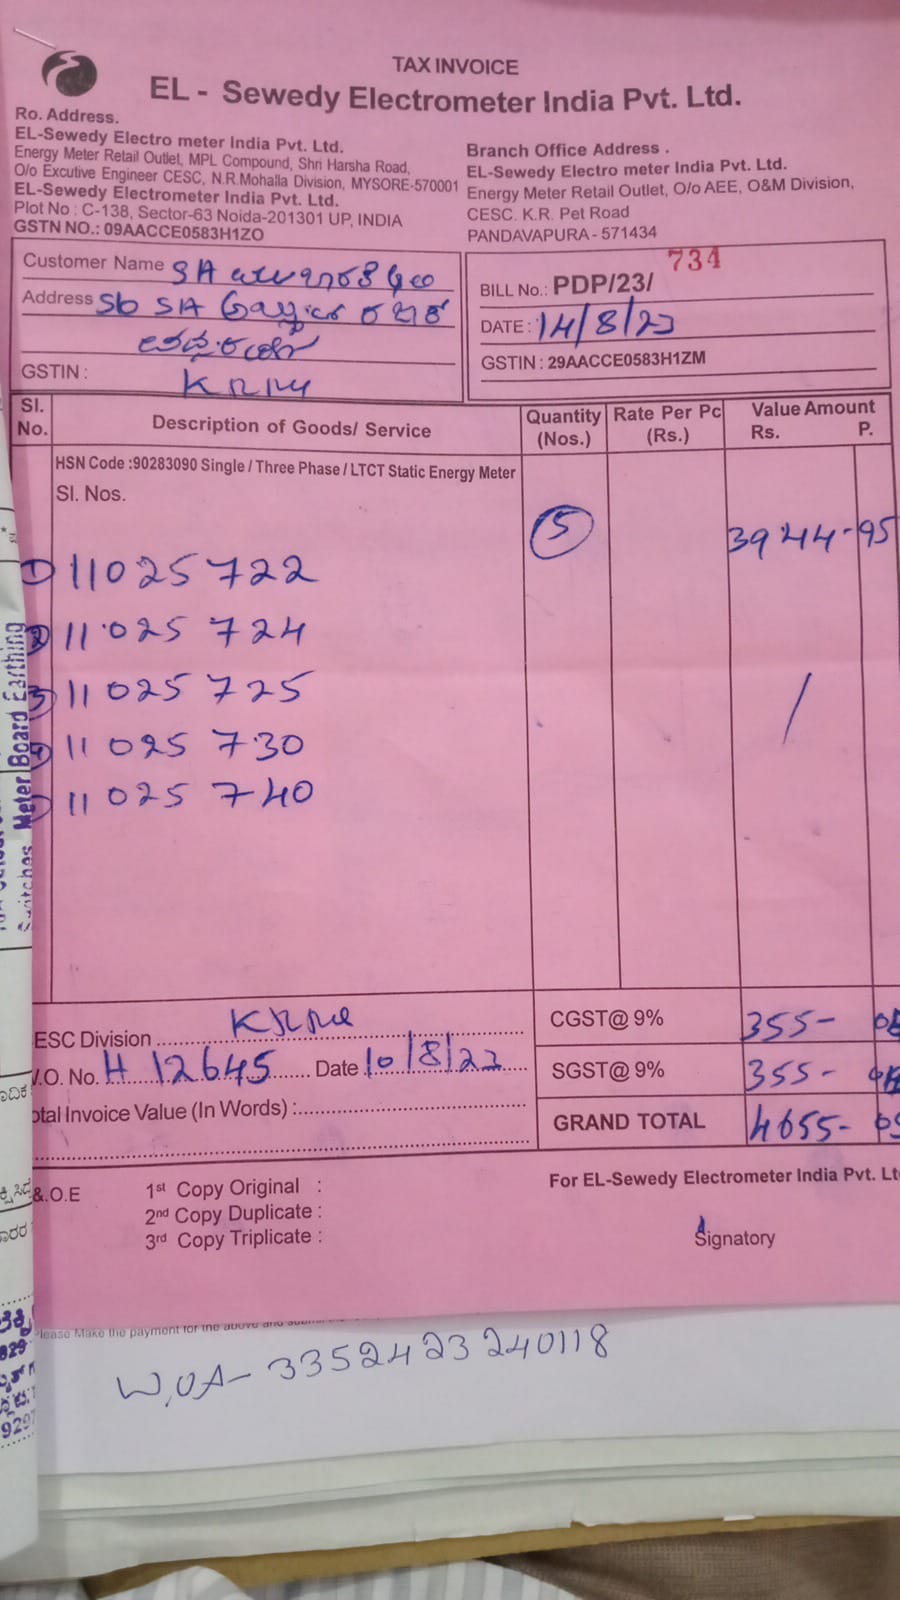 TAX INVOICE
EL - Sewedy Electrometer India Pvt. Ltd.
Ro. Address.
EL-Sewedy Electro meter India Pvt. Ltd.
Energy Meter Retail Outlet, MPL Compound, Shri Harsha Road,
O/o Excutive Engineer CESC, N.R.Mohalla Division, MYSORE-570001
EL-Sewedy Electrometer India Pvt. Ltd.
Plot No : C-138, Sector-63 Noida-201301 UP, INDIA
GSTN NO.: 09AACCE0583H1ZO
Branch Office Address .
EL-Sewedy Electro meter India Pvt. Ltd.
Energy Meter Retail Outlet, O/o AEE, O&M Division,
CESC. K.R. Pet Road
PANDAVAPURA - 571434
Customer Name
Address
GSTIN :
734
BILL No.: PDP/23/
DATE : 14/8/23
GSTIN : 29AACCE0583H1ZM
Sl. No. Description of Goods/ Service Quantity (Nos.) Rate Per Pc (Rs.) Value Amount Rs. P.
HSN Code :90283090 Single / Three Phase / LTCT Static Energy Meter
Sl. Nos.
5 3944-95
1 11025722
2 11025724
3 11025725
4 11025730
11025740
ESC Division
CGST@ 9% 355-
.O. No. H 12645 Date 10/8/23
SGST@ 9% 355-
otal Invoice Value (In Words) :
GRAND TOTAL 4655- 05
&.O.E
1st Copy Original :
2nd Copy Duplicate :
3rd Copy Triplicate :
For EL-Sewedy Electrometer India Pvt. Lt
Signatory
lease Make the payment for the above and
W,OA- 3352423240118
Switches Meter Board Earthing